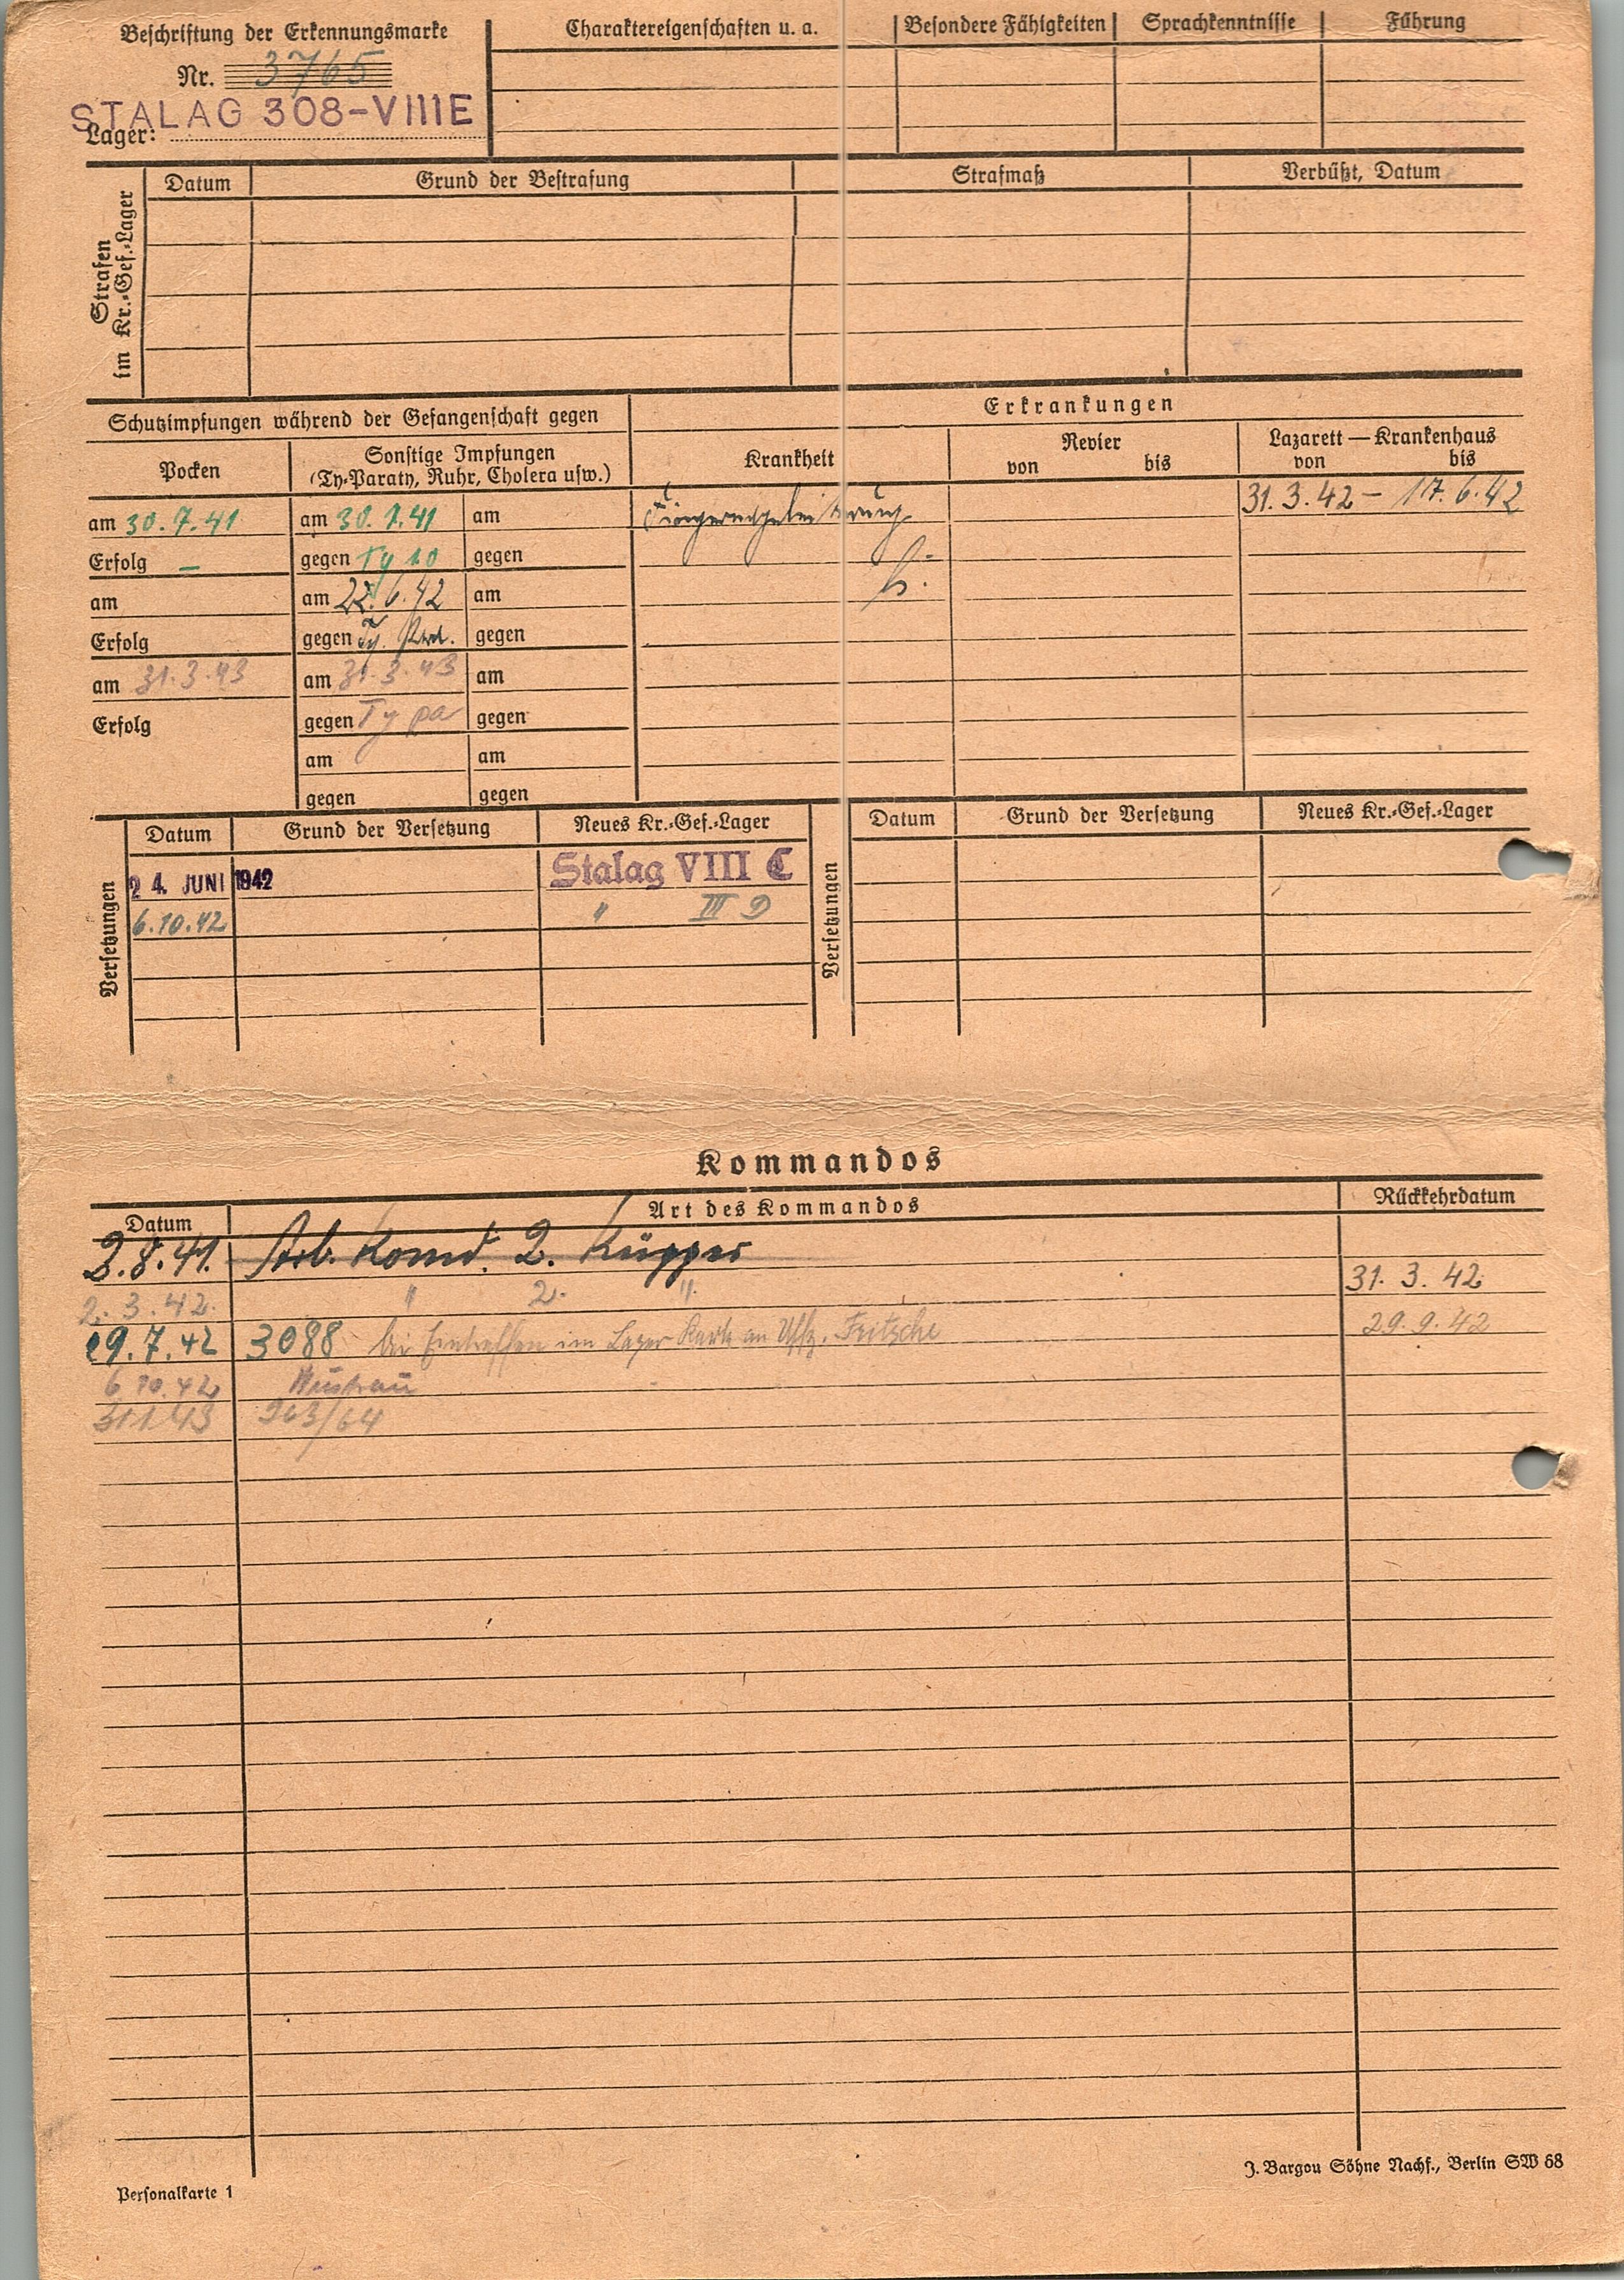 Beschriftung der Erkennungsmarke
Nr. 3765
STALAG 308-VIIIE
Lager:
Charaktereigenschaften u. a.
Besondere Fähigkeiten
Sprachkenntnisse
Führung
Strafen im Kr.-Gef.-Lager
Datum
Grund der Bestrafung
Strafmaß
Verbüßt, Datum
Schutzimpfungen während der Gefangenschaft gegen
Erkrankungen
Pocken
Sonstige Impfungen
(Ty-Paraty, Ruhr, Cholera usw.)
Krankheit
Revier
von bis
Lazarett — Krankenhaus
von bis
31.3.42 – 17.6.42
am 30.7.41
am 30.7.41
am
Erfolg –
gegen Ty
gegen
am
am 22.6.42
am
Erfolg
gegen Ty.
gegen
am 31.3.43
am 31.3.43
am
Erfolg
gegen Ty pa
gegen
am
am
gegen
gegen
Versetzungen
Datum
Grund der Versetzung
Neues Kr.-Gef.-Lager
24. JUNI 1942
Stalag VIII C
6.10.42
" III D
Versetzungen
Datum
Grund der Versetzung
Neues Kr.-Gef.-Lager
Kommandos
Datum
Art des Kommandos
Rückkehrdatum
2.8.41. Arb. Komd. 2. Küpper
2.3.42. " 2. " 31.3.42
29.7.42 3088 bei Eintreffen im Lager Karte an Uffz. Fritsche 29.9.42
6.10.42 Wustrau
31.1.43 963/64
Personalkarte 1
J. Bargou Söhne Nachf., Berlin SW 68